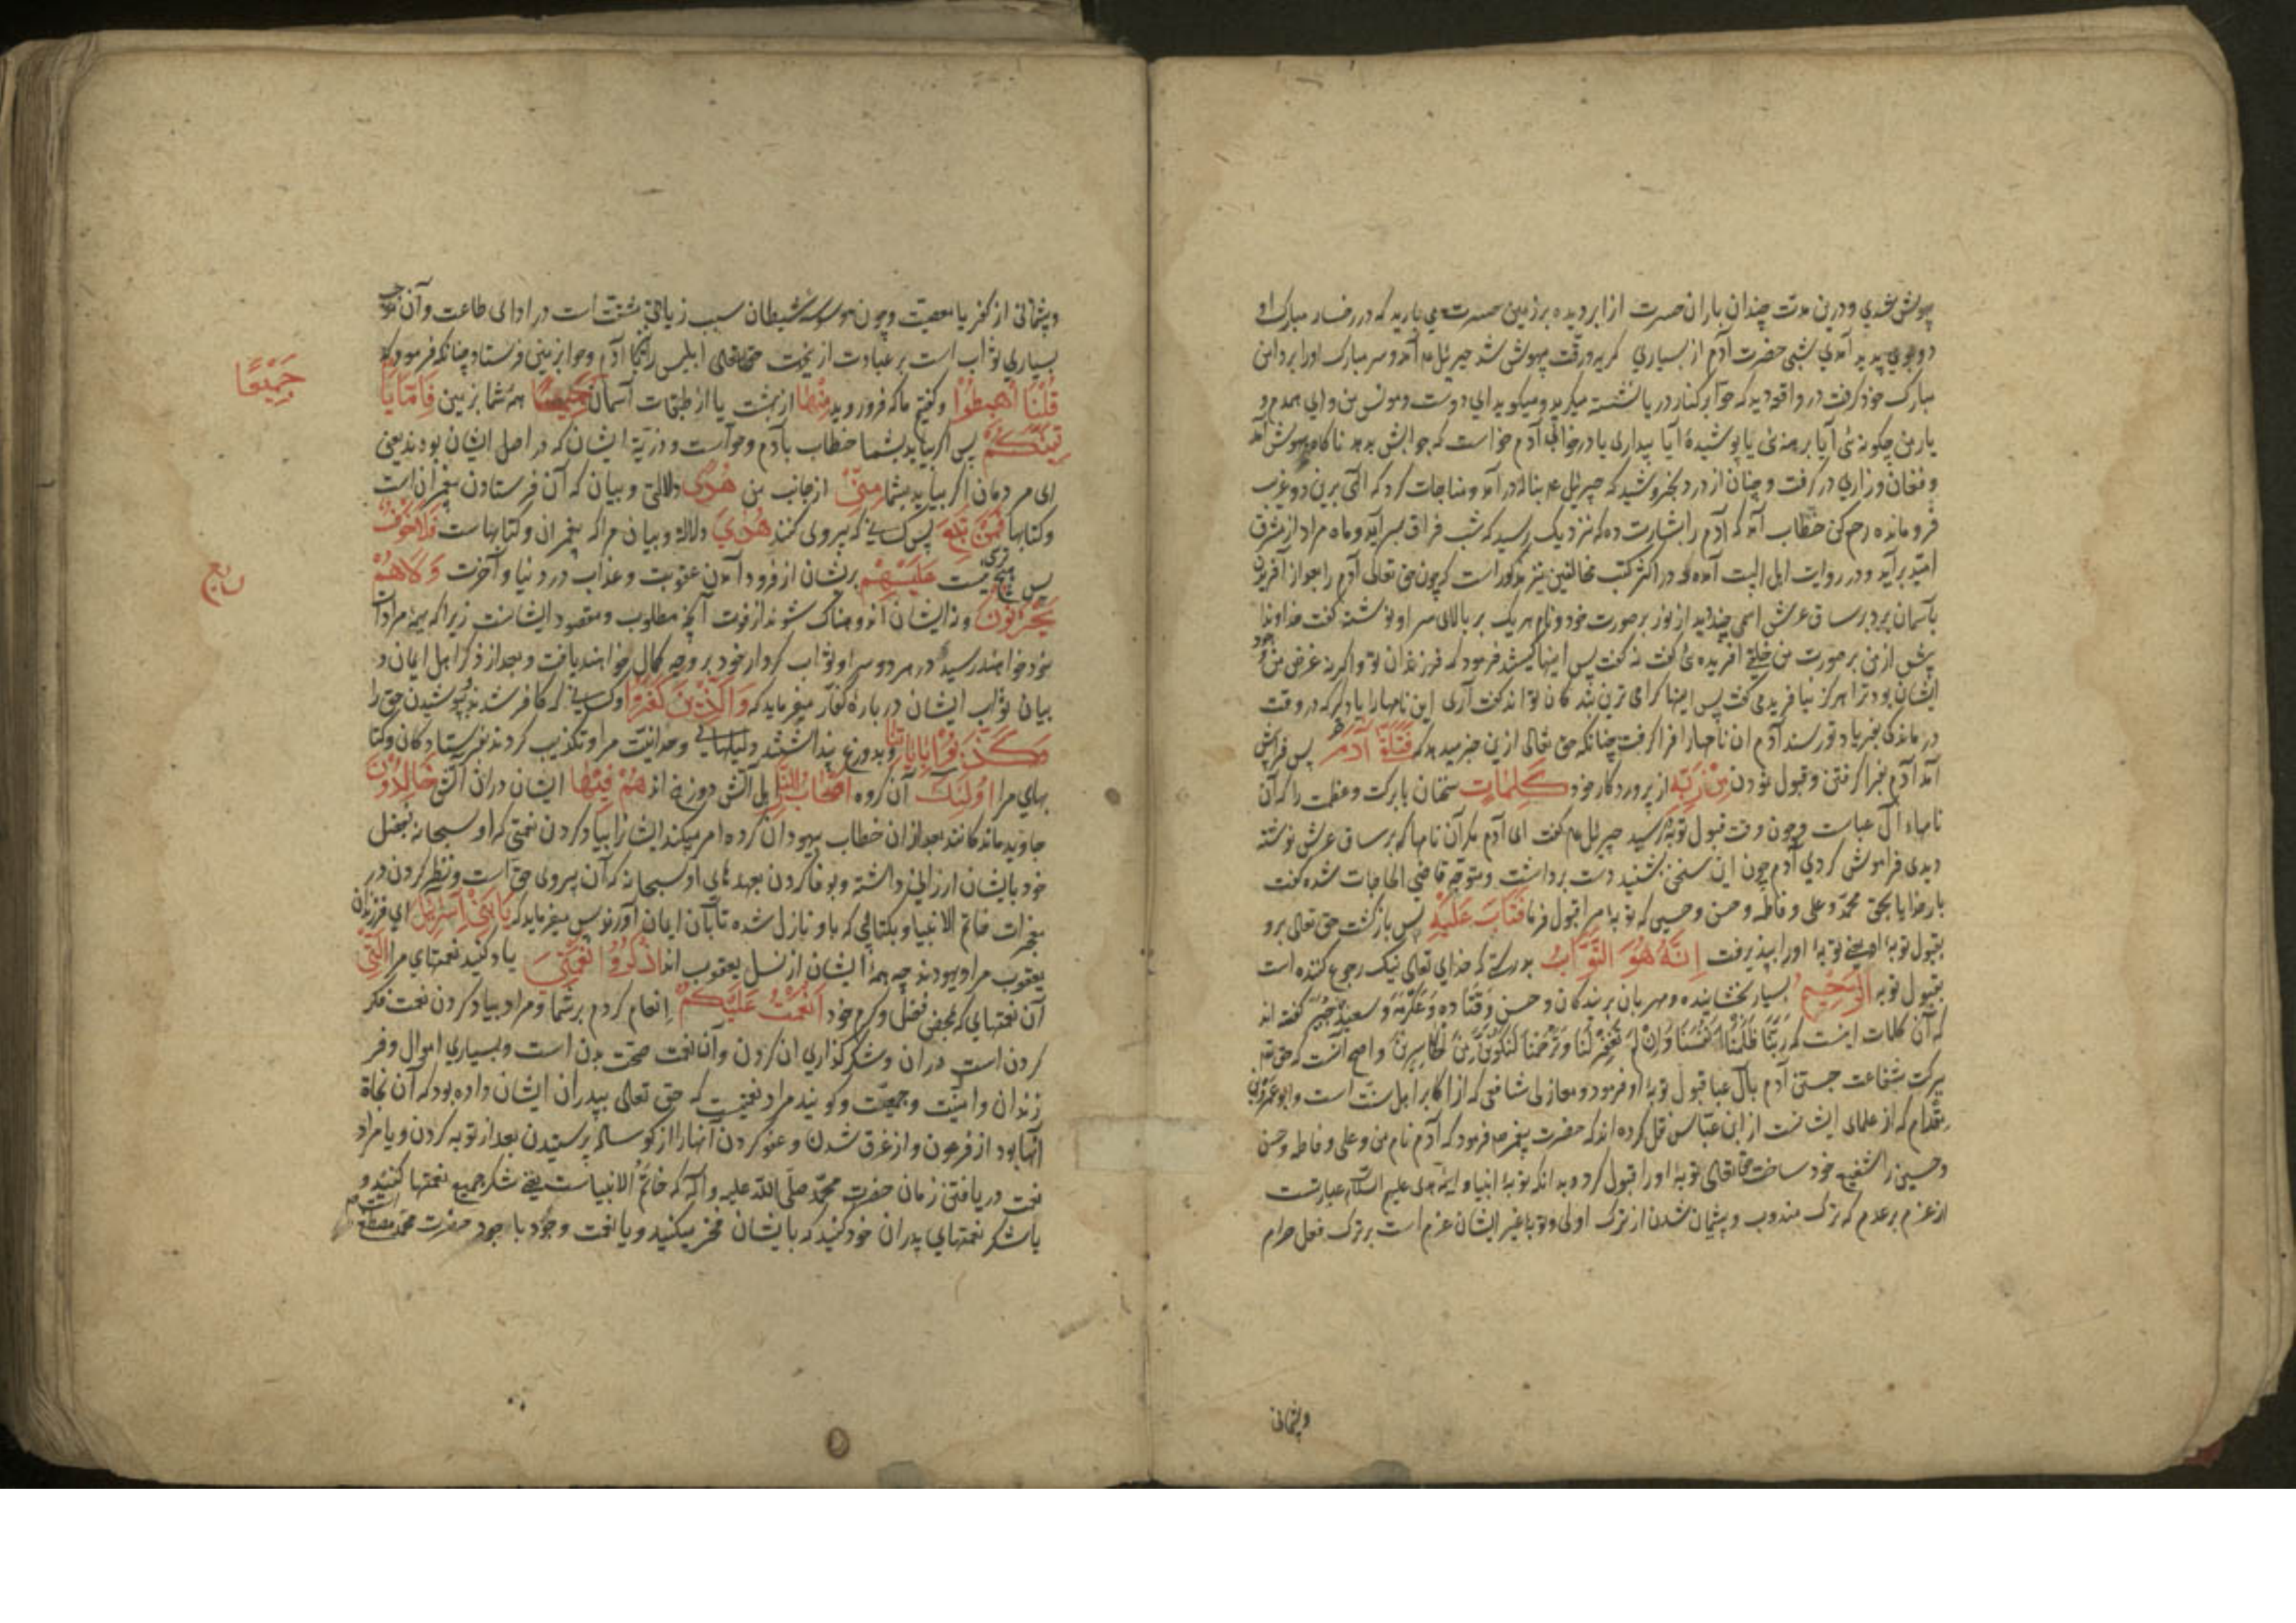 بیهوش شدی و درین مدت چندان باران حسرت از ابر دیده بر زمین حسرت می بارید که در رخسار مبارک او
دو جوی پدید آمدی شبی حضرت آدم از بسیاری کریه و رقت بیهوش شد جبرئیل عم آمد و سر مبارک او را بر دامن
مبارک خود کرفت در واقعه دید که حوا بر کنار دریا نشسته میکرید و میکوید ای دوست و مونس من و ای همدم و
یار من چکونه ئی آیا برهنه ئی یا پوشیدهٔ آیا بیداری یا در خوابی آدم خواست که جوابش بدهد ناکاه بهوش آمد
و فغان و زاری در کرفت و چنان از درد بخروشید که جبرئیل عم بناله در آمد و مناجات کرد که الهی برین دو غریب
فرو مانده رحم کن خطاب آمد که آدم را بشارت ده که نزدیک رسید که شب فراق بسر آید و ماه مراد از مشرق
امید برآید و در روایت اهل البیت آمده و در اکثر کتب مخالفین نیز مذکور است که چون حق تعالی آدم را
بآسمان برد بر ساق عرش اسمی چند دید از نور بر صورت خود و نام هر یک بر بالای سر او نوشته کفت خداوندا
پیش از من بر صورت من خلقی آفریده ئی کفت نه کفت پس اینها کیستند فرمود که فرزندان تو و اکر نه غرض من
ایشان بود ترا هرکز نیافریدمی کفت پس اینها کرامی ترین بندکان تو اند کفت آری این نامها را یاد کیر که در وقت
درماندکی بفریاد تو رسند آدم ان نامها را فرا کرفت چنانکه حق تعالی ازین خبر میدهد که فَتَلَقّیٰ آدَمُ پس فرا پیش
آمد آدم بفرا کرفتن و قبول نمودن مِنْ رَبِّهِ از پروردکار خود کَلِمٰاتٍ سخنان با برکت و عظمت را که آن
نامهاء آل عباست و چون وقت قبول توبه رسید جبرئیل عم کفت ای آدم مکر آن نامها که بر ساق عرش نوشته
دیدی فراموش کردی آدم چون این سخن بشنید دست برداشت و متوجه قاضی الحاجات شده کفت
بار خدایا بحق محمد و علی و فاطمه و حسن و حسین که توبهٔ مرا قبول فرما فَتَابَ عَلَیْهِ پس باز کشت حق تعالی برو
بقبول توبهٔ او یعنی توبهٔ او را بپذیرفت اِنَّهُ هُوَ التَّوّٰابُ بدرستی که خدای تعالی نیک رجوع کننده است
بقبول توبه الرَّحِیْمُ بسیار بخشاینده و مهربان بر بندکان و حسن وَ قَتٰاده وَ عکرمه وَ سعید جبیر کفته اند
که آن کلمات اینست که رَبَّنٰا ظَلَمْنٰا اَنْفُسَنٰا وَاِنْ لَمْ تَغْفِرْ لَنٰا وَتَرْحَمْنٰا لَنَکُوْنَنَّ مِنَ الْخٰاسِرِیْنَ و اصح آنست که حق تع
ببرکت شفاعت جستن آدم بآل عبا قبول توبهٔ او فرمود و مغازلی شافعی که از اکابر اهل سنت است و ابو عمرو
مقدام که از علمای ایشانست از ابن عباس نقل کرده اند که حضرت پیغمبر صم فرمود که آدم نام من و علی و فاطمه و حسن
و حسین را شفیع خود ساخت حقتعالی توبهٔ او را قبول کرد و بدانکه توبهٔ انبیا و ایمهٔ هدی علیهم السلام عبارتست
از عزم بر عدم که ترک مندوب و پشیمان شدن از ترک اولی و توبهٔ غیر ایشان عزم است بر ترک فعل حرام
وپشمانی
وپشمانی از کفر یا معصیت و چون وسوسهٔ شیطان سبب زیادتی مشقت است در ادای طاعت و آن موجب
بسیاری ثواب است بر عبادت ازین جهت حقتعالی ابلیس را با آدم و حوا بزمین فرستاد چنانکه فرمود که
قُلْنَا اهْبِطُوْا و کفتیم ما که فرو روید مِنْهٰا از بهشت یا از طبقات آسمان جَمِیْعًا همه شما بزمین فَاِمّٰا یَا
جَمِیْعًا
تِیَنَّکُمْ پس اکر بیاید بشما خطاب بآدم و حواست و ذریّهٔ ایشان که در اصل ایشان بودند یعنی
ای مردمان اکر بیاید بشما مِنّیْ از جانب من هُدًی دلالتی و بیان که آن فرستادن پیغمبران است
و کتابها فَمَنْ تَبِعَ پس کسانی که پیروی کنند هُدٰایَ دلالت و بیان مرا که پیغمبران و کتابهاست فَلٰا خَوْفٌ
پس هیچ ترسی نیست عَلَیْهِمْ بر یشان از فرود آمدن عقوبت و عذاب در دنیا و آخرت وَلٰاهُمْ
ربع
یَحْزَنُوْنَ و نه ایشان اندوهناک شوند از فوت آنچه مطلوب و مقصود ایشانست زیرا که بهمهٔ مرادات
خود خواهند رسید در هر دو سرا و ثواب کردار خود بر وجه کمال خواهند یافت و بعد از ذکر اهل ایمان و
بیان ثواب ایشان در بارهٔ کفار میفرماید که وَالَّذِیْنَ کَفَرُوْا و کسانی که کافر شدند بپوشیدن حق را
وَکَذَّبُوْا بِآیٰاتِنٰا و بدروغ پنداشتند دلیلهای وحدانیت مرا و تکذیب کردند فرستادکان و کتا
بهای مرا اُولٰئِکَ آن کروه اَصْحٰابُ النّٰارِ اهل آتش دوزخ اند هُمْ فِیْهٰا ایشان در ان آتش خٰالِدُوْنَ
جاوید ماندکانند بعد از ان خطاب بیهودان کرده امر میکند ایشانرا بیاد کردن نعمتی که او سبحانه بفضل
خود بایشان ارزانی داشته و بوفا کردن بعهدهای او سبحانه که آن پیروی حق است و نظر کردن در
معجزات خاتم الانبیا و بکتابی که باو نازل شده تا بآن ایمان آورند پس میفرماید که یٰا بَنِیْ اِسْرٰائِیْلَ ای فرزندان
یعقوب مراد یهودند چه همهٔ ایشان از نسل یعقوب اند اذْکُرُوْا نِعْمَتِیَ یاد کنید نعمتهای مرا الَّتِیْ
آن نعمتهایی که بمحض فضل و کرم خود اَنْعَمْتُ عَلَیْکُمْ اِنعام کردم بر شما و مراد بیاد کردن نعمت فکر
کردن است در ان و شکر کذاری ان کردن و آن نعمت صحت بدن است و بسیاری اموال و فر
زندان و امنیّت و جمعیّت و کویند مراد نعمتیست که حق تعالی بپدران ایشان داده بود که آن نجاة
آنها بود از فرعون و از غرق شدن و عفو کردن آنها را از کوساله پرستیدن بعد از توبه کردن و یا مراد
نعمت دریافتن زمان حضرت محمّد صلّی اللّه علیه وآله که خاتَم الانبیاست یعنی شکر جمیع نعمتها کنید و
یا شکر نعمتهای پدران خود کنید که بایشان فخر میکنید و یا نعمت وجود با جود حضرت محمّد مصطفی است صم